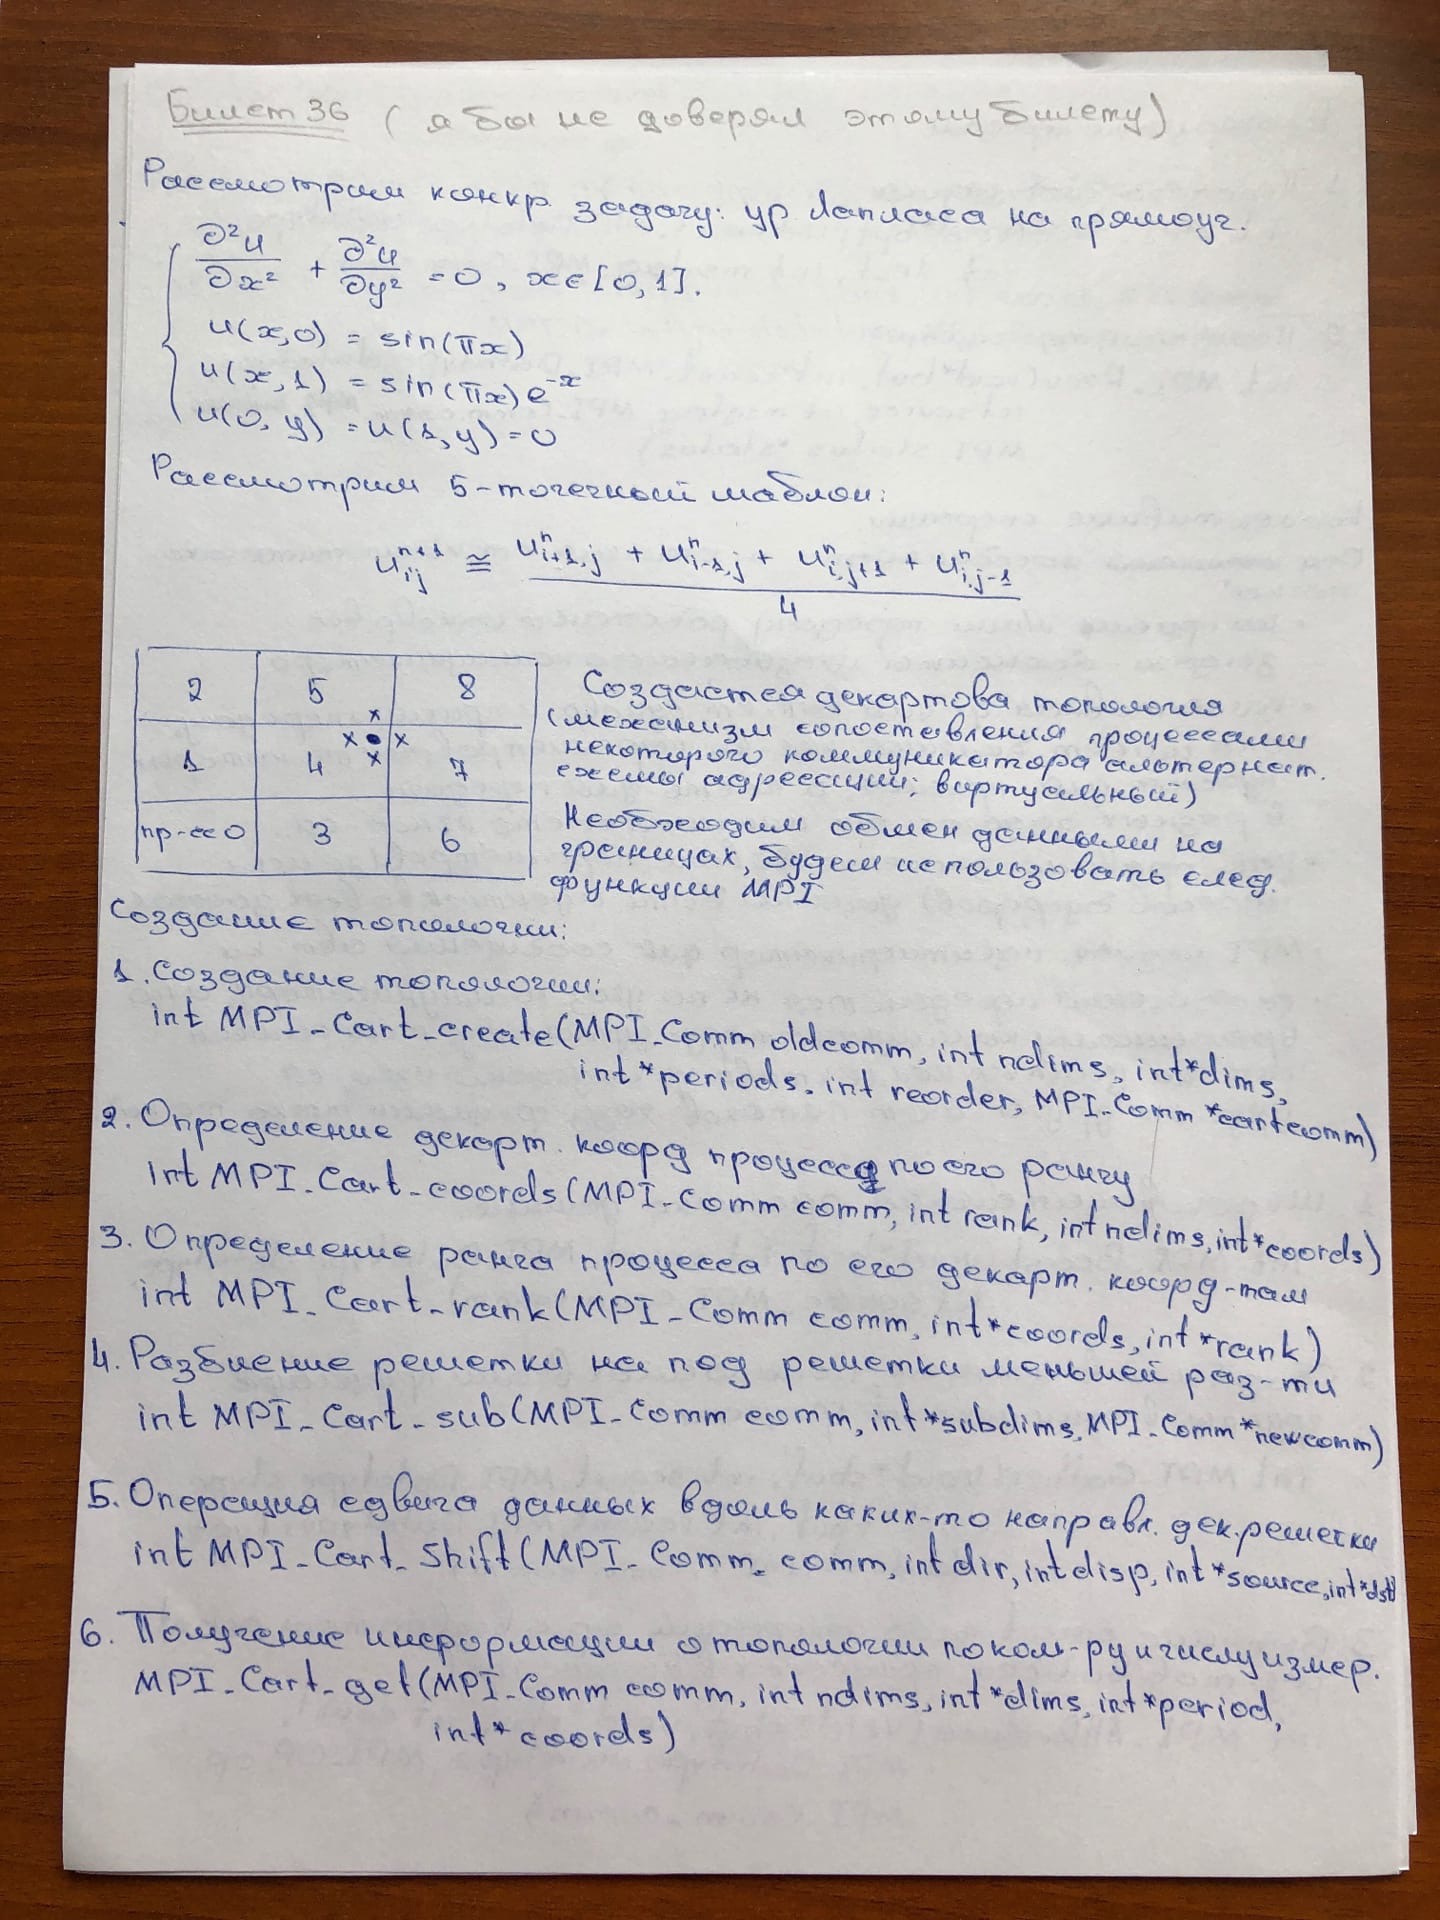 Билет 36 (я бы не доверял этому билету)
Рассмотрим конкр. задачу: ур Лапласа на прямоуг.
∂²u/∂x² + ∂²u/∂y² = 0, x∈[0,1].
u(x,0) = sin(πx)
u(x,1) = sin(πx)e^{-x}
u(0,y) = u(1,y) = 0
Рассмотрим 5-точечный шаблон:
u_{ij}^{n+1} ≅ (u_{i+1,j}^n + u_{i-1,j}^n + u_{i,j+1}^n + u_{i,j-1}^n) / 4
2 5 8
1 4 7
пр-сс 0 3 6
Создается декартова топология
(механизм сопоставления процессами
некоторого коммуникатора альтернат.
схемы адресации; виртуальный)
Необходим обмен данными на
границах, будем использовать след.
функции MPI
Создание топологии:
1. Создание топологии:
int MPI_Cart_create(MPI_Comm oldcomm, int ndims, int *dims,
int *periods. int reorder, MPI_Comm *cartcomm)
2. Определение декарт. коорд процесса по его рангу
int MPI_Cart_coords(MPI_Comm comm, int rank, int ndims, int *coords)
3. Определение ранга процесса по его декарт. коорд-там
int MPI_Cart_rank(MPI_Comm comm, int *coords, int *rank)
4. Разбиение решетки на под решетки меньшей раз-ти
int MPI_Cart_sub(MPI_Comm comm, int *subdims, MPI_Comm *newcomm)
5. Операция сдвига данных вдоль каких-то направл. дек.решетки
int MPI_Cart_Shift(MPI_Comm. comm, int dir, int disp, int *source, int *dst)
6. Получение информации о топологии по ком-ру и числу измер.
MPI_Cart_get(MPI_Comm comm, int ndims, int *dims, int *period,
int *coords)